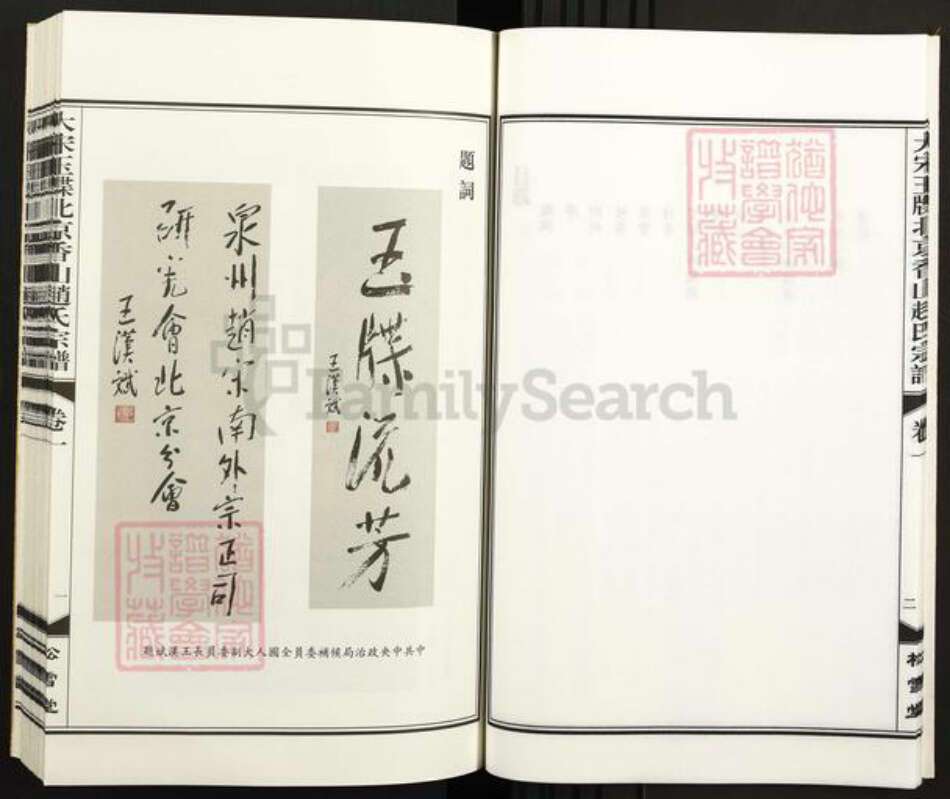 題詞
玉牒流芳
王漢斌
泉州趙宋南外宗正司
研究會北京分會
王漢斌
中共中央政治局候補委員全國人大副委員長王漢斌題
大宋玉牒北京香山趙氏宗譜
卷一
一
松雪堂
猶他家
譜學會
收藏
大宋玉牒北京香山趙氏宗譜
卷一
二
松雪堂
猶他家
譜學會
收藏
FamilySearch